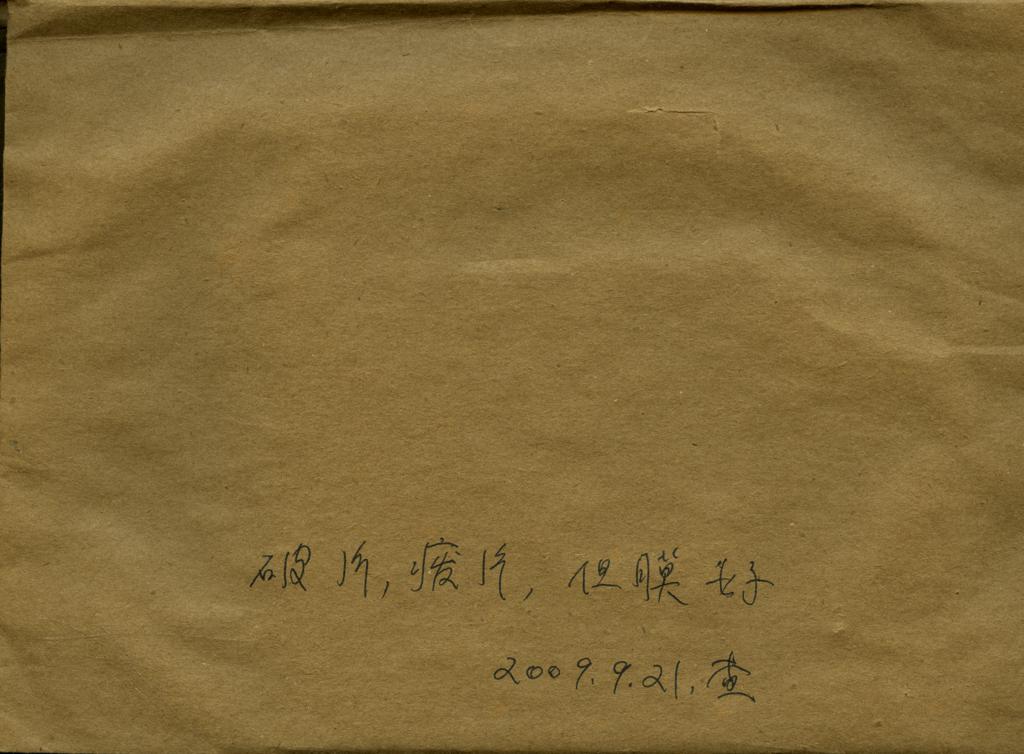 破片,废片,但膜好
2009.9.21.查